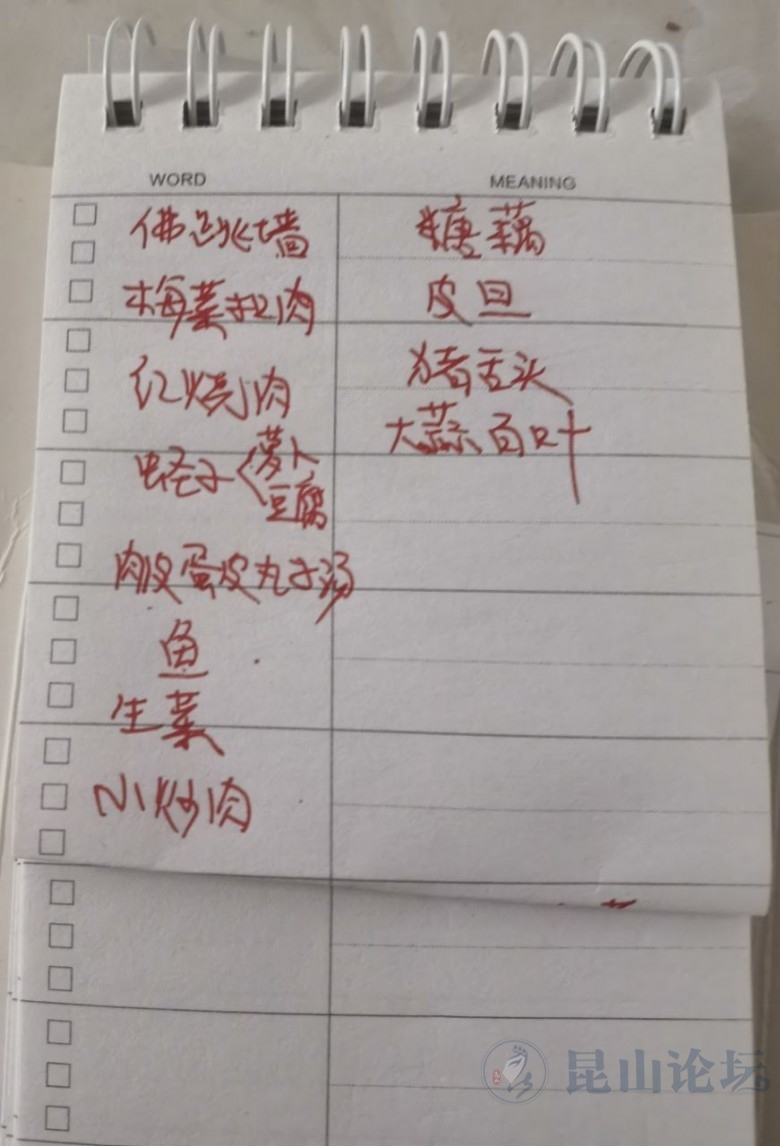 WORD
MEANING
佛跳墙
梅菜扣肉
红烧肉
蛏子
萝卜
豆腐
肉皮蛋皮丸子汤
鱼
生菜
小炒肉
糖藕
皮旦
猪舌头
大蒜百叶
昆山论坛